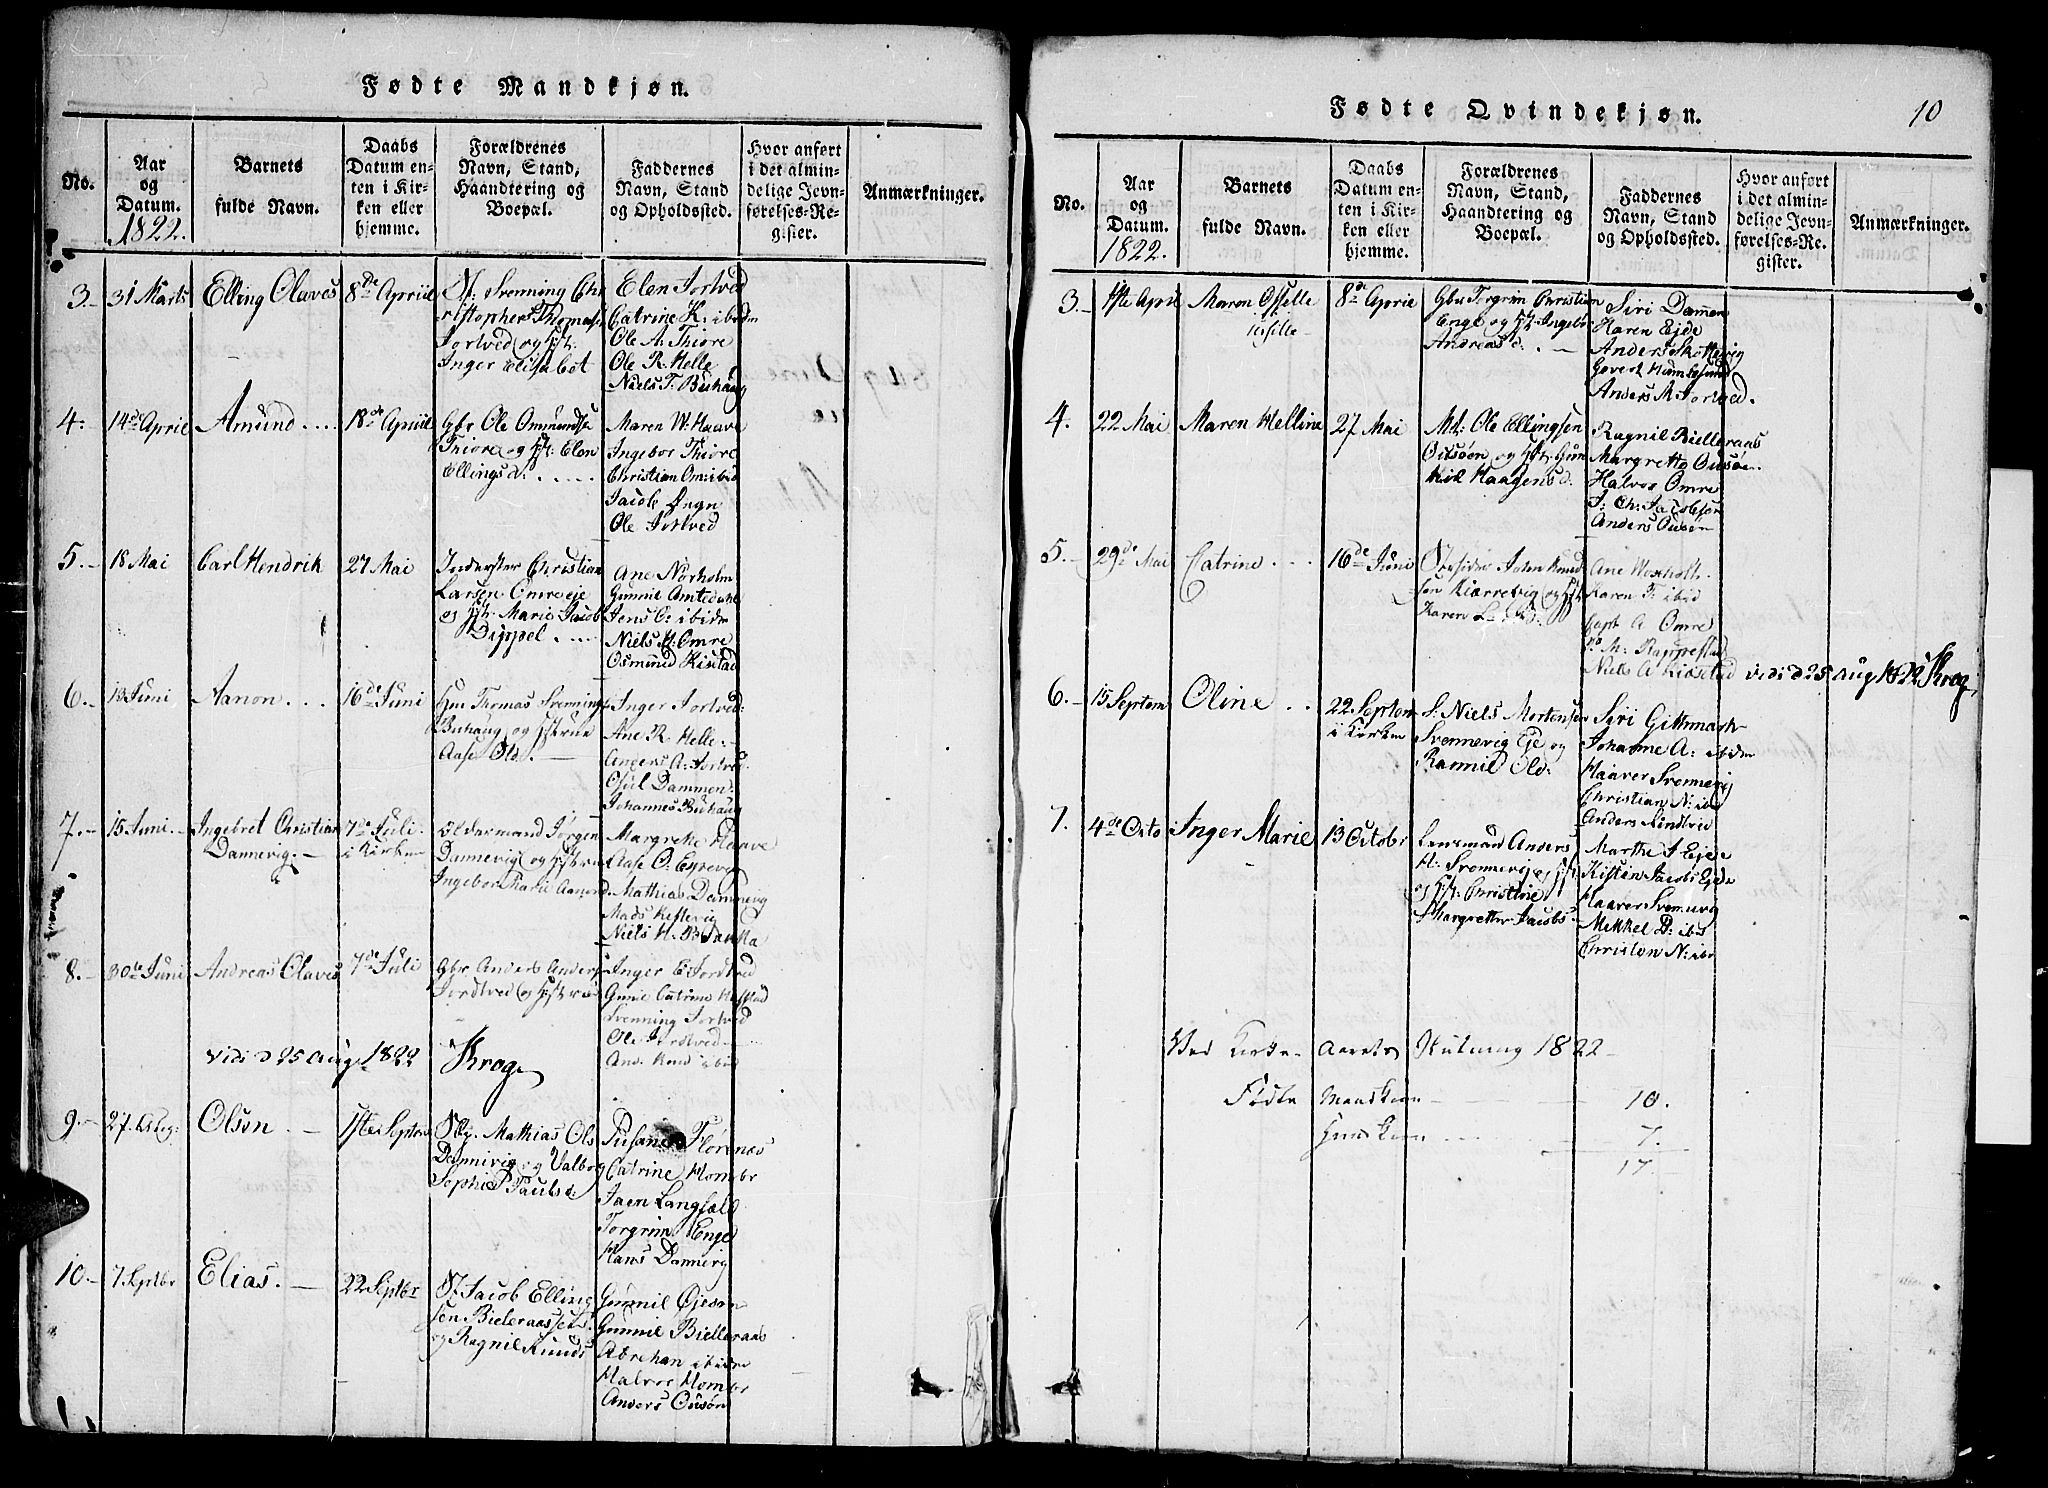 Fødte Mandkjøn.
No.
Aar
og
Datum.
1822.
Barnets
fulde Navn.
Daabs
Datum en-
ten i Kir-
ken eller
hjemme.
Forældrenes
Navn, Stand,
Haandtering og
Boepæl.
Faddernes
Navn, Stand
og Opholdssted.
Hvor anført
i det almin-
delige Jevn-
førelses-Re-
gister.
Anmærkninger.
3.-
31 Marts
Elling Olaves
8de Apriil
Svenning Ch
ristopher Thomasse
Tortved og
Inger Elisabet
Elen Tortved
Catrine K. ibidm
Ole A. Thiore
Ole R. Helle
Niels T. Buhaug
4.-
14de April
Amund
18de Apriil
Gbr Ole Ommundse
Thiore og Elen
Ellingsd.
Maren W. Haave
Ingebor Thiore
Christian Om: ibid
Jacob Ougn
Ole Tortved
5.-
18 Mai
Carl Hendrik
27 Mai
Inderster Christian
Larsen Omreeie
og Marie Jacob
Dippel
Ane Norholm
Gunnil Amtedahl
Jens C: ibidm
Niels H: Omre
Osmund Kistad
6.-
13 Juni
Aanon
16de Juni
Thomas Svenning
Buhaug og
Aase Old.
Inger Tortved
Ane R. Helle
Anders A: Tortved
Osul Dammen
Johannes Buhaug
7.-
15 Juni
Ingebret Christian
Dannevig.-
7de Juli
i Kirken
Oldermand Jørgen
Dannevig og
Ingebor Marie Aanond
Margrethe Haave
Aase O: Eyrevig
Mathias Dannevig
Mads Keflevig
Niels H.
8.-
30de Juni
Andreas Olaves
7de Juli
Gbr Anders Anders
Tordtved og
Inger E Tordtved
Gunil Catrine Hafstad
Svenning Tortved
Ole Tordtved
And. Knud ibid
Vidi d 25 Aug 1822
Krog
9.-
27. Aug:
Olson
1ste Septem
Mathias Ols
Dannivig og Valbor
Sophie Paulsd
Susane Florenæs
Catrine Hombr
Jaen Langfæld
Torgrim Enge
Hans Dannevig
10.-
7 Septbr
Elias.
22 Septbr
Jacob Elling
sen Bieleraassen
og Ragnil Knuds
Gunnil Ojesøn
Gunnil Bielleraas
Abrehan ibidm
Halvor Hombr
Anders Ousøn
Fødte Qvindekjøn.
10
No.
Aar
og
Datum.
1822.
Barnets
fulde Navn.
Daabs
Datum en-
ten i Kir-
ken eller
hjemme.
Forældrenes
Navn, Stand,
Haandtering og
Boepæl.
Faddernes
Navn, Stand
og Opholdssted.
Hvor anført
i det almin-
delige Jevn-
førelses-Re-
gister.
Anmærkninger.
3.-
April
Maren Osselle
8de April
Gbr Torgrim Christian
Enge og Ingebor
Andreas d.
Siri Dammen
Karen Ejde
Anders Skottevig
Govert Humlesund
Anders M Tortved.
4.
22 Mai
Maren Helline
27 Mai
Md: Ole Ellingsen
Ousøen og Gun
hild Haagensd.
Ragnil Bielleraas
Margrette Ousøen
Halvor Omre
J: Ch: Jacobsen
Anders Ousøn
5.-
29de Mai
Catrine
16de Juni
John Knud
sen Kiærrevig og
Karen Larsd.
Ane Woxholt
Karen T: ibid
A Omre
M: Rappestad
Niels A Kiæstad
vidi d 25 Aug 1822 Krog
6.-
15 Septem
Oline
22 Septem
i Kirken
S: Niels Mortensen
Svennevig Eje og
Rannil Old.
Siri Gitmark
Johanne A: ibidm
Haaver Svennevig
Christian N: ibid
Anders Nindtvie
7.
4de Octo
Inger Marie
13 Octobr
Lensmand Anders
H: Svennevig og
og Christine
Margrette Jacobs
Marthe J Ejde
Kisten Jacobs Ejde
Haaver Svennevig
Mekkel D: ibid
Christen N: ibid
Ved Kirke Aarets Slutning 1822
Fødte Mandkiøn 10.
Qvindekiøn 7.
17.